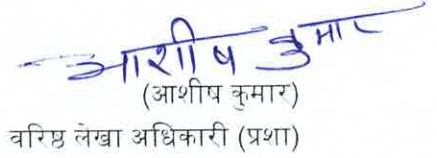 आशीष कुमार
(आशीष कुमार)
वरिष्ठ लेखा अधिकारी (प्रशा)